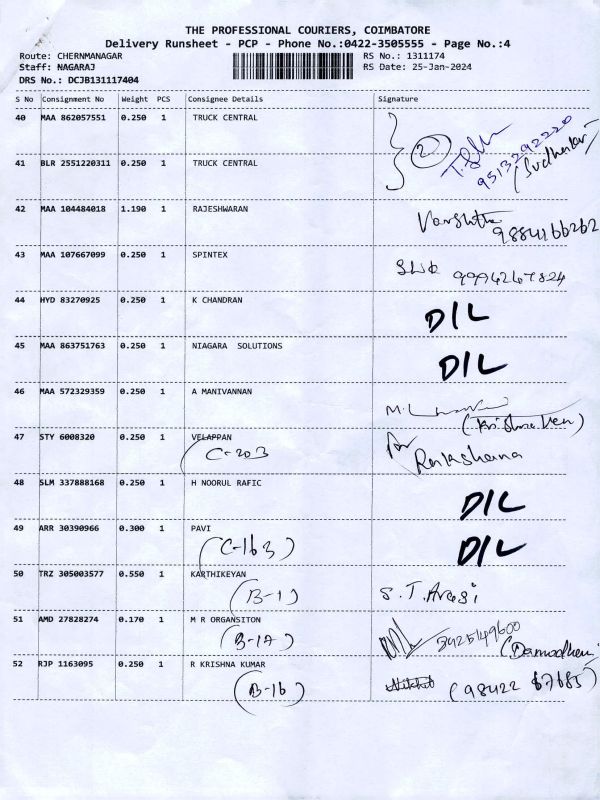 THE PROFESSIONAL COURIERS, COIMBATORE
Delivery Runsheet - PCP - Phone No.:0422-3505555 - Page No.:4
Route: CHERNMANAGAR RS No.: 1311174
Staff: NAGARAJ RS Date: 25-Jan-2024
DRS No.: DCJB131117404
S No Consignment No Weight PCS Consignee Details Signature
40 MAA 862057551 0.250 1 TRUCK CENTRAL
2 9513292220
41 BLR 2551220311 0.250 1 TRUCK CENTRAL (Sudhakar)
42 MAA 104484018 1.190 1 RAJESHWARAN
9884166262
43 MAA 107667099 0.250 1 SPINTEX 9994267824
44 HYD 83270925 0.250 1 K CHANDRAN D/L
45 MAA 863751763 0.250 1 NIAGARA SOLUTIONS D/L
46 MAA 572329359 0.250 1 A MANIVANNAN
47 STY 6008320 0.250 1 VELAPPAN
C-203 Rakshana
48 SLM 337888168 0.250 1 H NOORUL RAFIC D/L
49 ARR 30390966 0.300 1 PAVI D/L
(C-163)
50 TRZ 305003577 0.550 1 KARTHIKEYAN S.T.Arasi
(B-1)
51 AMD 27828274 0.170 1 M R ORGANSITON
(B-17) (Damodhen)
52 RJP 1163095 0.250 1 R KRISHNA KUMAR
(B-16) (98422 87685)